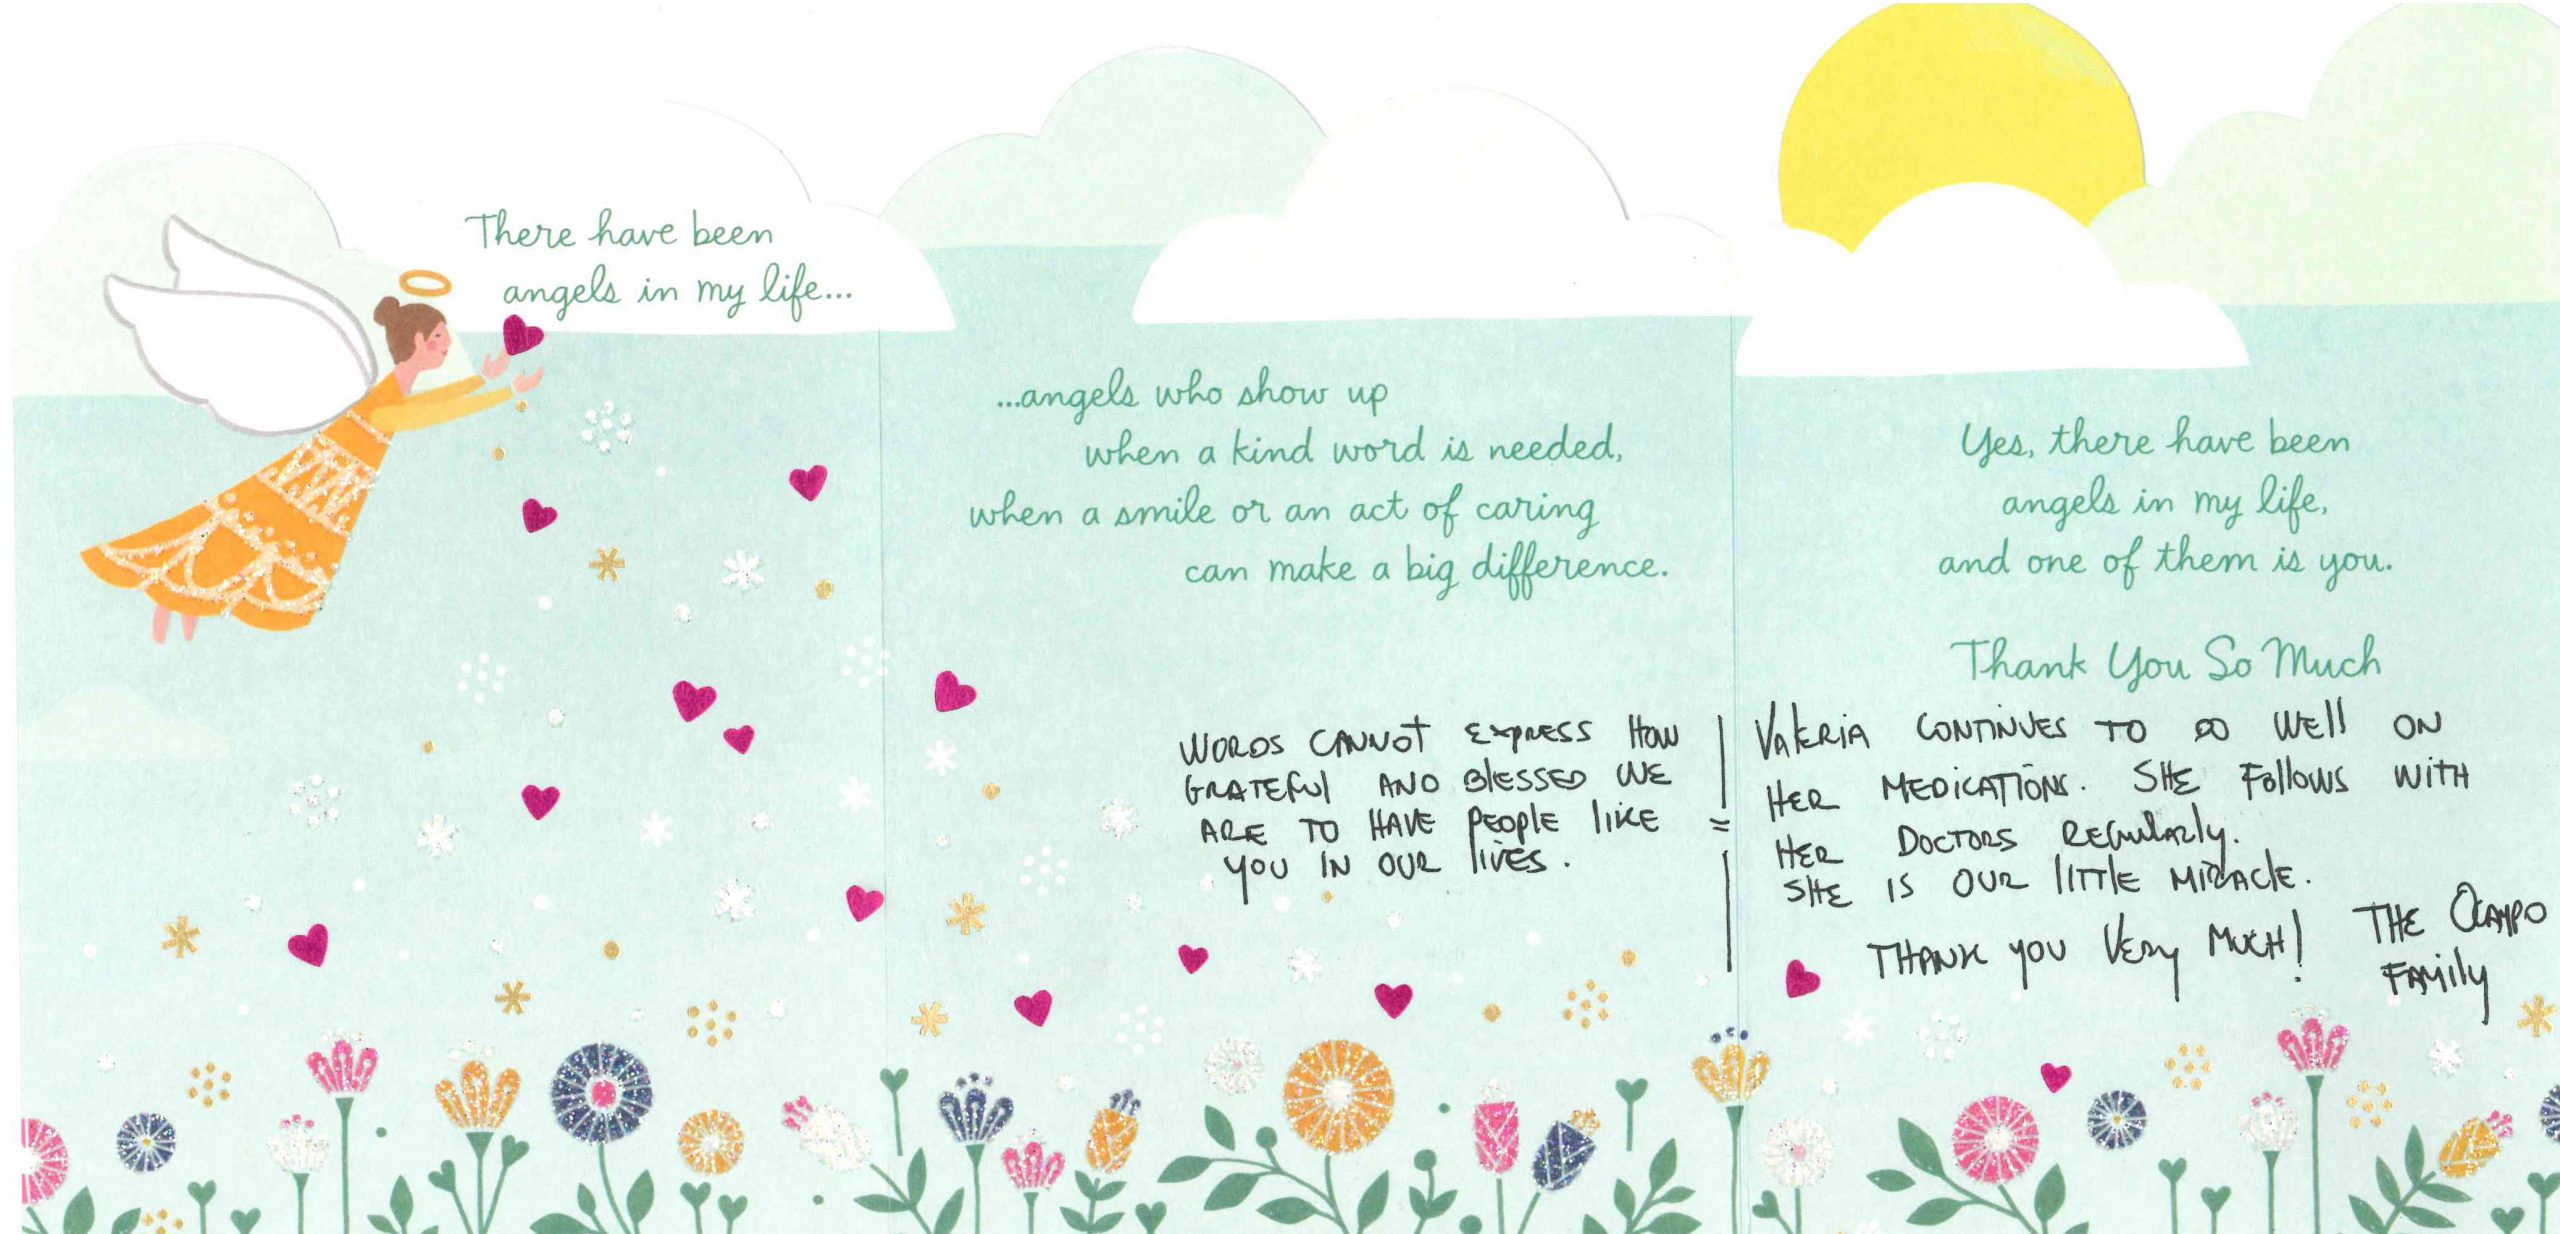 There have been
angels in my life...
...angels who show up
when a kind word is needed,
when a smile or an act of caring
can make a big difference.
WORDS CANNOT EXPRESS HOW
GRATEFUL AND BLESSED WE
ARE TO HAVE PEOPLE LIKE
YOU IN OUR LIVES.
Yes, there have been
angels in my life,
and one of them is you.
Thank You So Much
VALERIA CONTINUES TO DO WELL ON
HER MEDICATIONS. SHE FOLLOWS WITH
HER DOCTORS REGULARLY.
SHE IS OUR LITTLE MIRACLE.
THANK YOU VERY MUCH!
THE OCAMPO
FAMILY